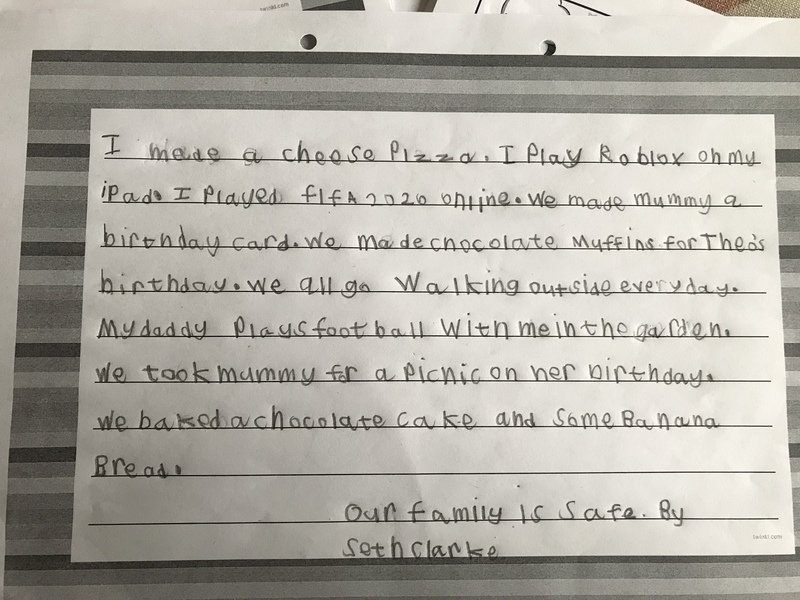 twinkl.com
I made a cheese Pizza. I Play Roblox on my
iPad. I Played fIfA 2020 online. We made mummy a
birthday card. We made chocolate Muffins for Theo's
birthday. We all go Walking outside everyday.
My daddy Plays football With me in the garden.
We took mummy for a picnic on her birthday.
We baked a chocolate cake and Some Banana
Bread.
Our family is Safe. By
Seth Clarke
twinkl.com